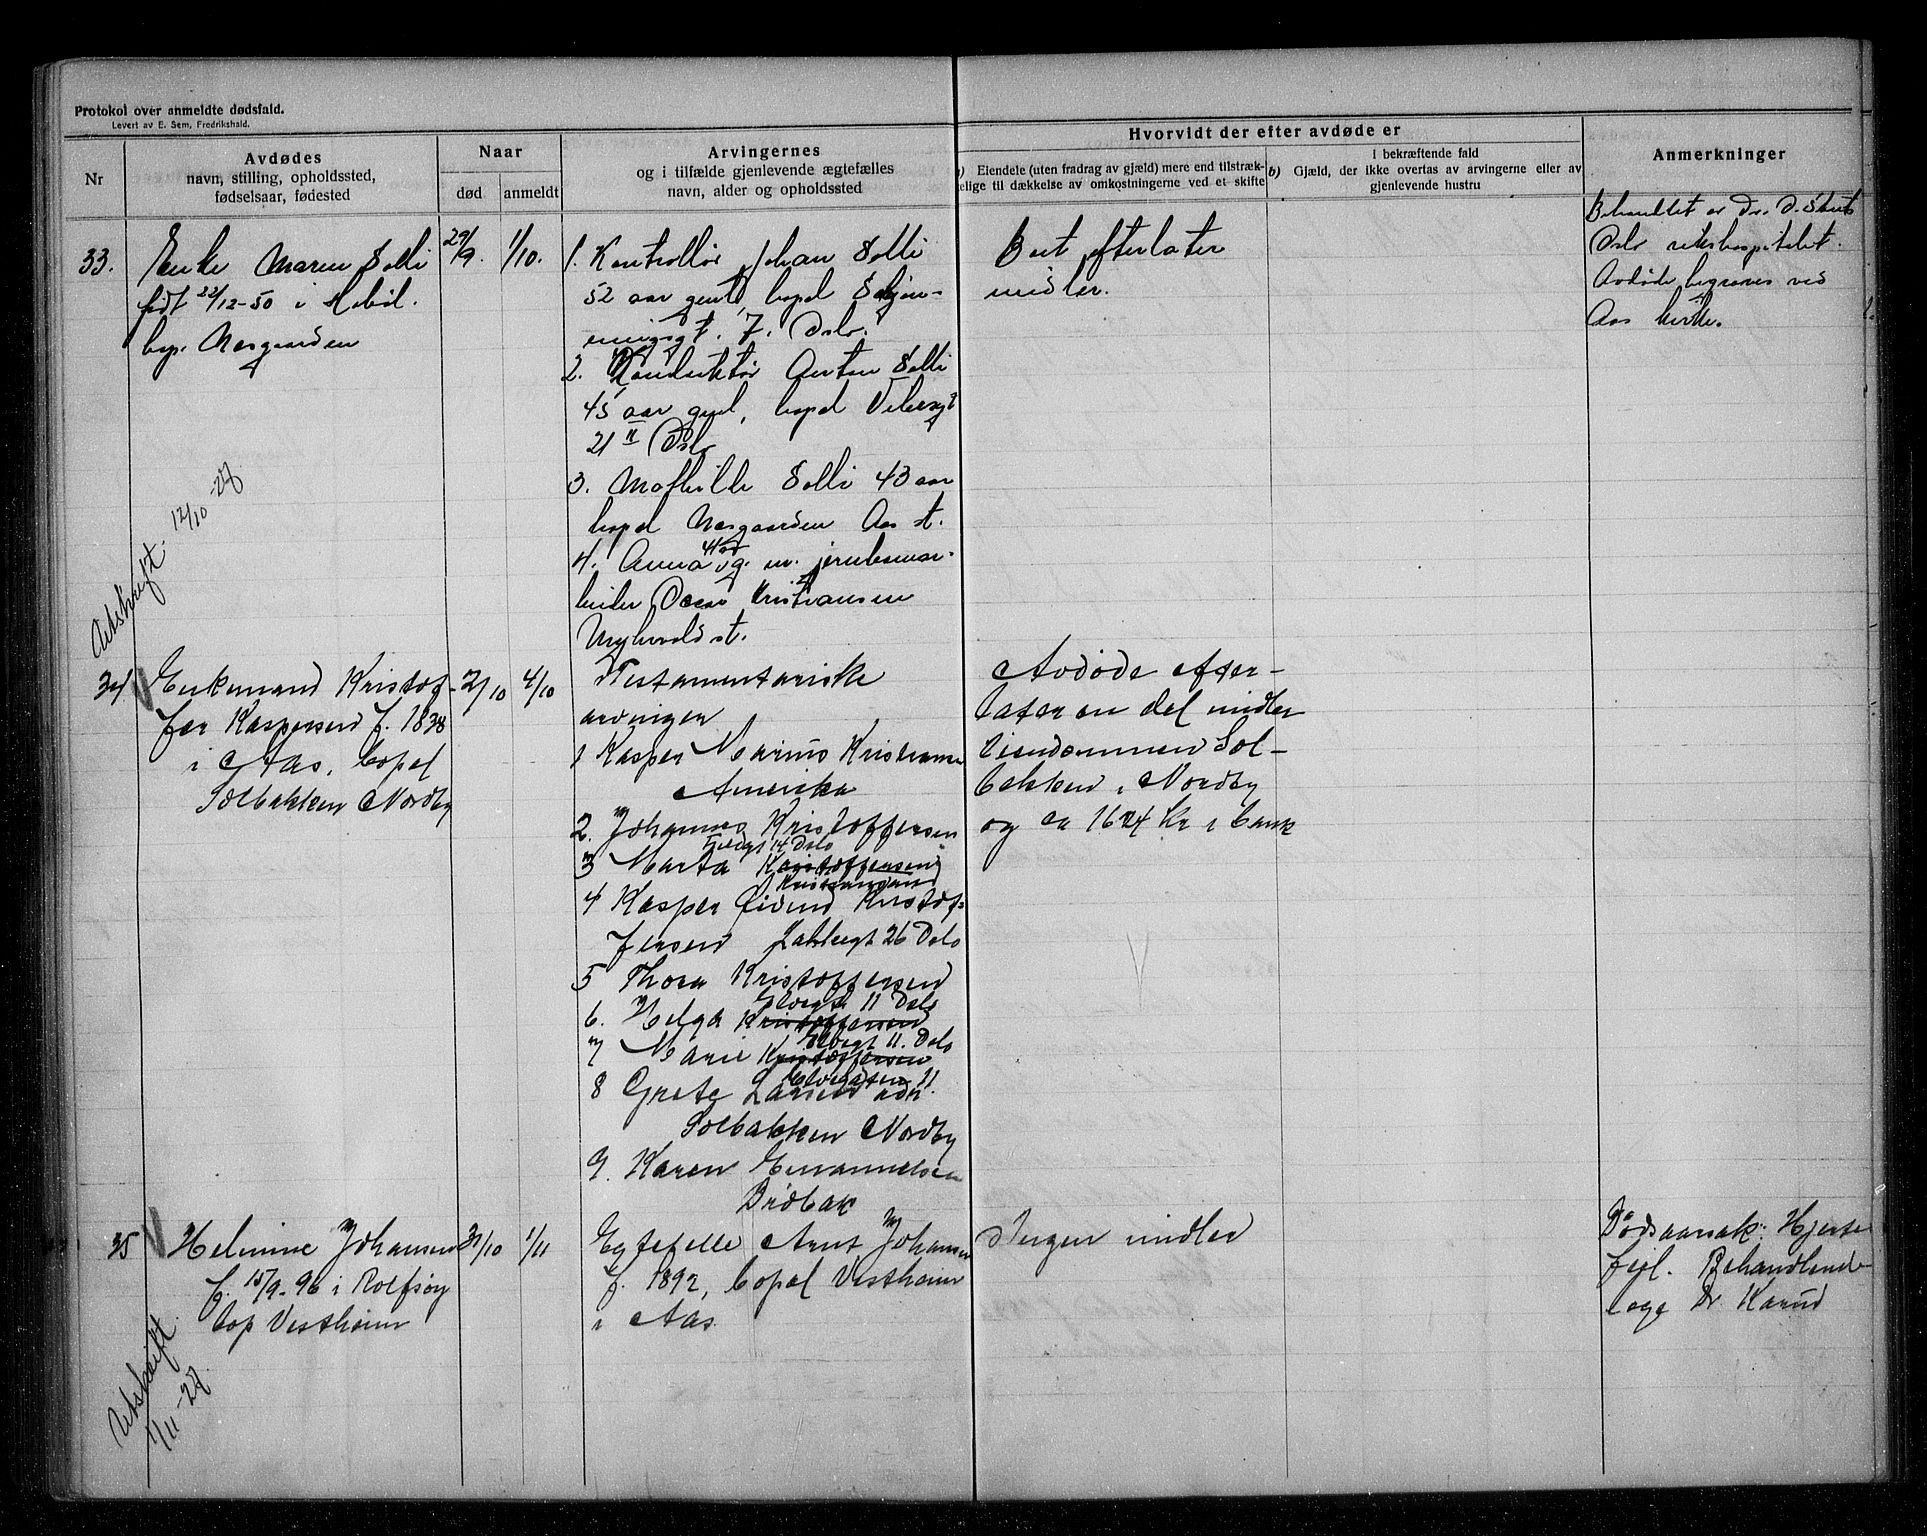 Protokol over anmeldte dødsfald.
Levert av E. Sem, Fredrikshald.
Nr
Avdødes
navn, stilling, opholdssted,
fødselsaar, fødested
Naar
død
anmeldt
Arvingernes
og i tilfælde gjenlevende ægtefælles
navn, alder og opholdssted
Hvorvidt der efter avdøde er
a) Eiendele (uten fradrag av gjæld) mere end tilstræk-
kelige til dækkelse av omkostningerne ved et skifte
I bekræftende fald
b) Gjæld, der ikke overtas av arvingerne eller av
gjenlevende hustru
Anmerkninger
33.
Enke Maren Solli
født 22/12-50 i Hobøl.
bop. Nesgaarden
29/9.
1/10.
1. Kontrollør Johan Solli
52 aar gml, bopel
7. Oslo.
2. Konduktør Anton Solli
45 aar gml, bopel
21 II Oslo
3. Mathilde Solli 43 aar
bopel Nesgaarden Aas st.
4. Anna 41 aar g. m. jernbanear-
beider Oscar Kristiansen
Myhrvold st.
Boet efterlater
midler.
Behandlet av Dr.
Oslo rikshospitalet.
Avdøde begraves ved
Aas kirke.
Utskrift 12/10-27
34
Enkemand Kristof-
fer Kaspersen f. 1838
i Aas, bopel
Solbakken Nordby
2/10
4/10
Testamentariske
arvinger
1 Kasper Marius Kristiansen
Amerika
2. Johannes Kristoffersen
14 Oslo
3 Marta Kristoffersen
Kristiansand
4 Kasper Eivind Kristof-
fersen Jakobsgt 26 Oslo
5 Thora Kristoffersen
Elvegt 11 Oslo
6. Helga Kristoffersen
Elvegt 11. Oslo
7 Marie Kristoffersen
Elvegaten 11
8 Grete Larsen adr.
Solbakken Nordby
9. Karen Emanuelsen
Drøbak
Avdøde efter-
later en del midler
Eiendommen Sol-
bakken i Nordby
og ca 1624 kr i bank
35
Helmine Johansen
f. 15/9-96 i Rolfsøy
bop Vestheim
31/10
1/11
Egtefelle Arnt Johansen
f. 1892, bopel Vestheim
i Aas
Ingen midler
Dødsaarsak: Hjerte
feil. Behandlende
lege Dr. Karud
Utskrift
1/11-27